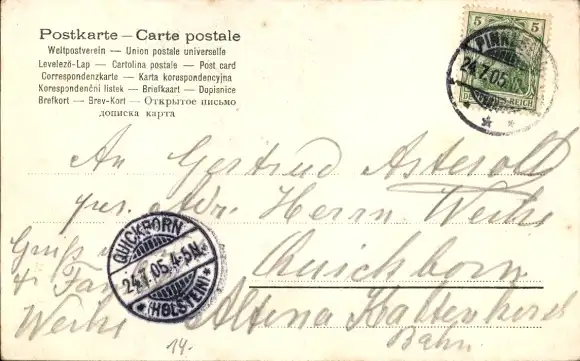 Postkarte — Carte postale
Weltpostverein — Union postale universelle
Levelező-Lap — Cartolina postale — Post card
Correspondenzkarte — Karta korespondencyjna
Korespondenční listek — Briefkaart — Dopisnice
Brefkort — Brev-Kort — Открытое письмо
дописка карта
5 5
24.7.05
An Gertrud
Herrn
Quickborn
Gruß
Altona Kaltenkircher
Bahn
QUICKBORN
24.7.05.4-5N.
(HOLSTEIN)
14.